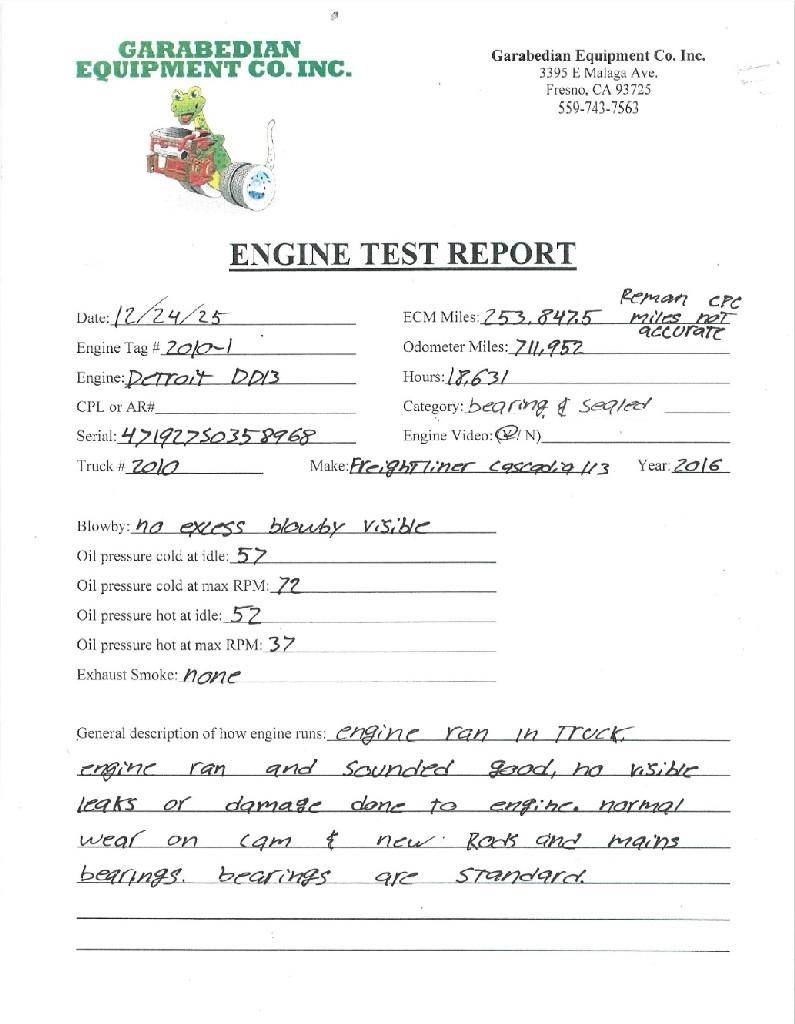 GARABEDIAN
EQUIPMENT CO. INC.
Garabedian Equipment Co. Inc.
3395 E Malaga Ave.
Fresno, CA 93725
559-743-7563
ENGINE TEST REPORT
Date: 12/24/25
ECM Miles: 253,847.5 Reman CPC miles not accurate
Engine Tag # 2010-1
Odometer Miles: 711,952
Engine: Detroit DD13
Hours: 18,631
CPL or AR#
Category: bearing & sealed
Serial: 471927S0358968
Engine Video: (Y/ N)
Truck # 2010
Make: Freightliner Cascadia 113
Year: 2016
Blowby: no excess blowby visible
Oil pressure cold at idle: 57
Oil pressure cold at max RPM: 72
Oil pressure hot at idle: 52
Oil pressure hot at max RPM: 37
Exhaust Smoke: none
General description of how engine runs: engine ran in Truck.
engine ran and sounded good, no visible
leaks or damage done to engine. normal
wear on cam & new Rods and mains
bearings. bearings are standard.